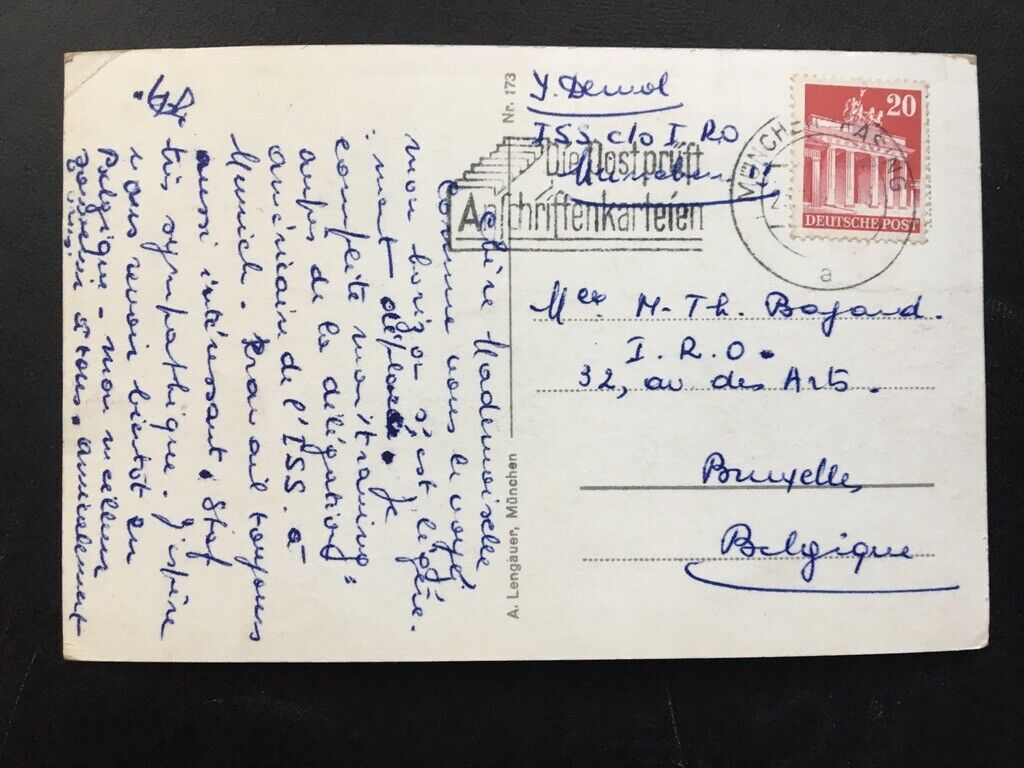 Chère Mademoiselle
Comme vous le voyez
mon horizon s'est légère-
ment déplacé. Je
complète mon training
auprès de la délégation
américaine de l'ISS. à
Munich. Travail toujours
aussi intéressant. Staf
très sympathique. J'espère
vous revoir bientôt en
Belgique - mon meilleur
souvenir à tous. amicalement
A. Lengauer, München
Nr. 173
Y. Demol
ISS c/o I.R.O
München
Die Post prüft
Anschriftenkarteien
MÜNCHEN-PASING
a
20
DEUTSCHE POST
Melle M-Th. Bogaard.
I.R.O.
32, av des Arts.
Bruxelles
Belgique